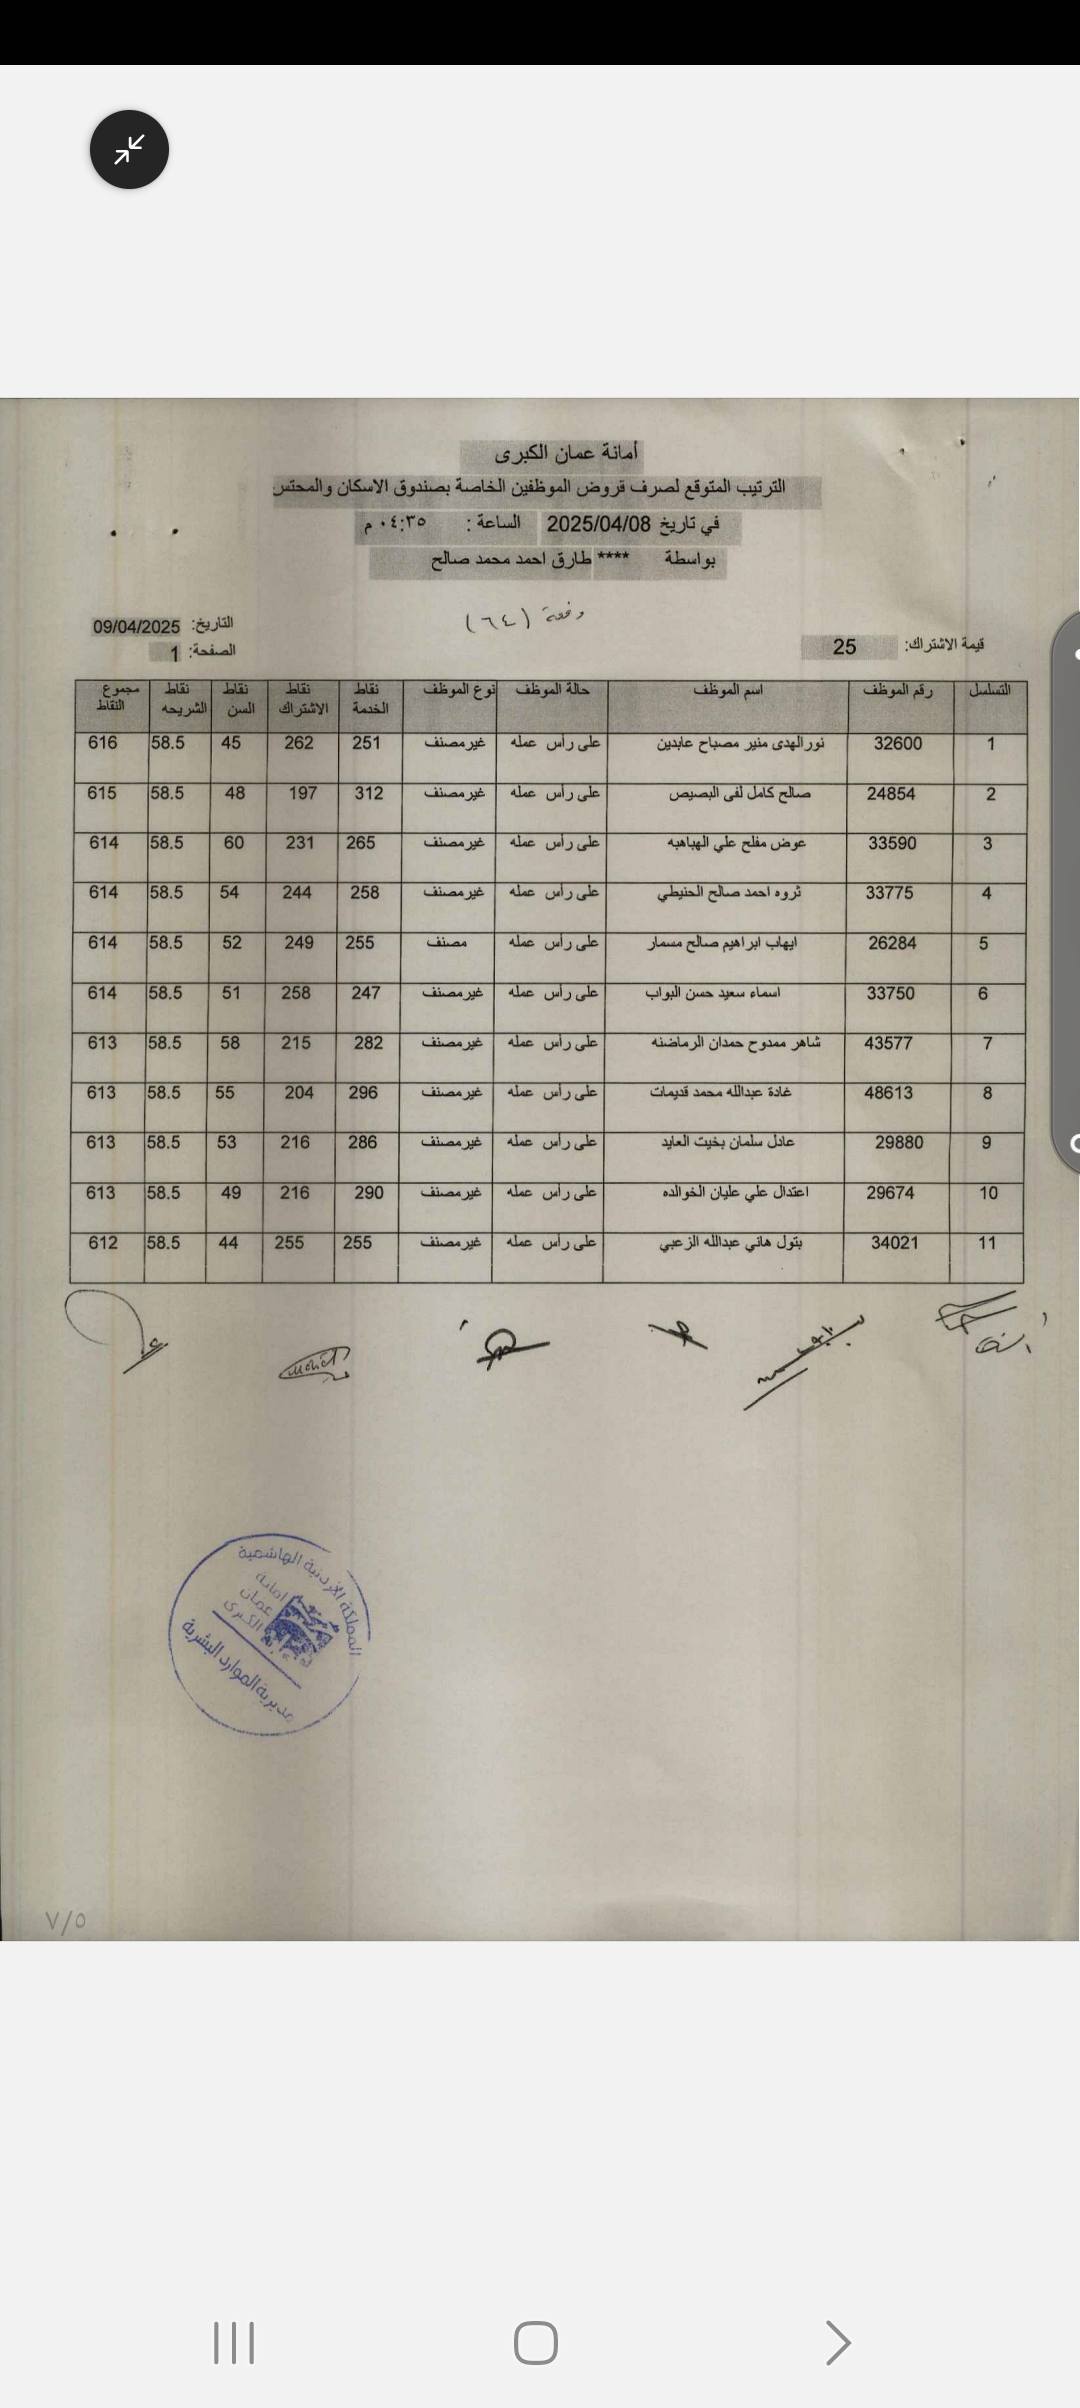 أمانة عمان الكبرى
الترتيب المتوقع لصرف قروض الموظفين الخاصة بصندوق الاسكان والمحتس
في تاريخ 2025/04/08 الساعة : ٠٤:٣٥ م
بواسطة **** طارق احمد محمد صالح
دفعة (٦٤)
التاريخ: 09/04/2025
الصفحة: 1
قيمة الاشتراك: 25
التسلسل رقم الموظف اسم الموظف حالة الموظف نوع الموظف نقاط الخدمة نقاط الاشتراك نقاط السن نقاط الشريحه مجموع النقاط
1 32600 نور الهدى منير مصباح عابدين على رأس عمله غير مصنف 251 262 45 58.5 616
2 24854 صالح كامل لفى البصيص على رأس عمله غير مصنف 312 197 48 58.5 615
3 33590 عوض مفلح علي الهباهبه على رأس عمله غير مصنف 265 231 60 58.5 614
4 33775 ثروه احمد صالح الحنيطي على رأس عمله غير مصنف 258 244 54 58.5 614
5 26284 ايهاب ابراهيم صالح مسمار على رأس عمله مصنف 255 249 52 58.5 614
6 33750 اسماء سعيد حسن البواب على رأس عمله غير مصنف 247 258 51 58.5 614
7 43577 شاهر ممدوح حمدان الرماضنه على رأس عمله غير مصنف 282 215 58 58.5 613
8 48613 غادة عبدالله محمد قديمات على رأس عمله غير مصنف 296 204 55 58.5 613
9 29880 عادل سلمان بخيت العايد على رأس عمله غير مصنف 286 216 53 58.5 613
10 29674 اعتدال علي عليان الخوالده على رأس عمله غير مصنف 290 216 49 58.5 613
11 34021 بتول هاني عبدالله الزعبي على رأس عمله غير مصنف 255 255 44 58.5 612
المملكة الأردنية الهاشمية
امانة
عمان
الكبرى
مديرية الموارد البشرية
٧/٥